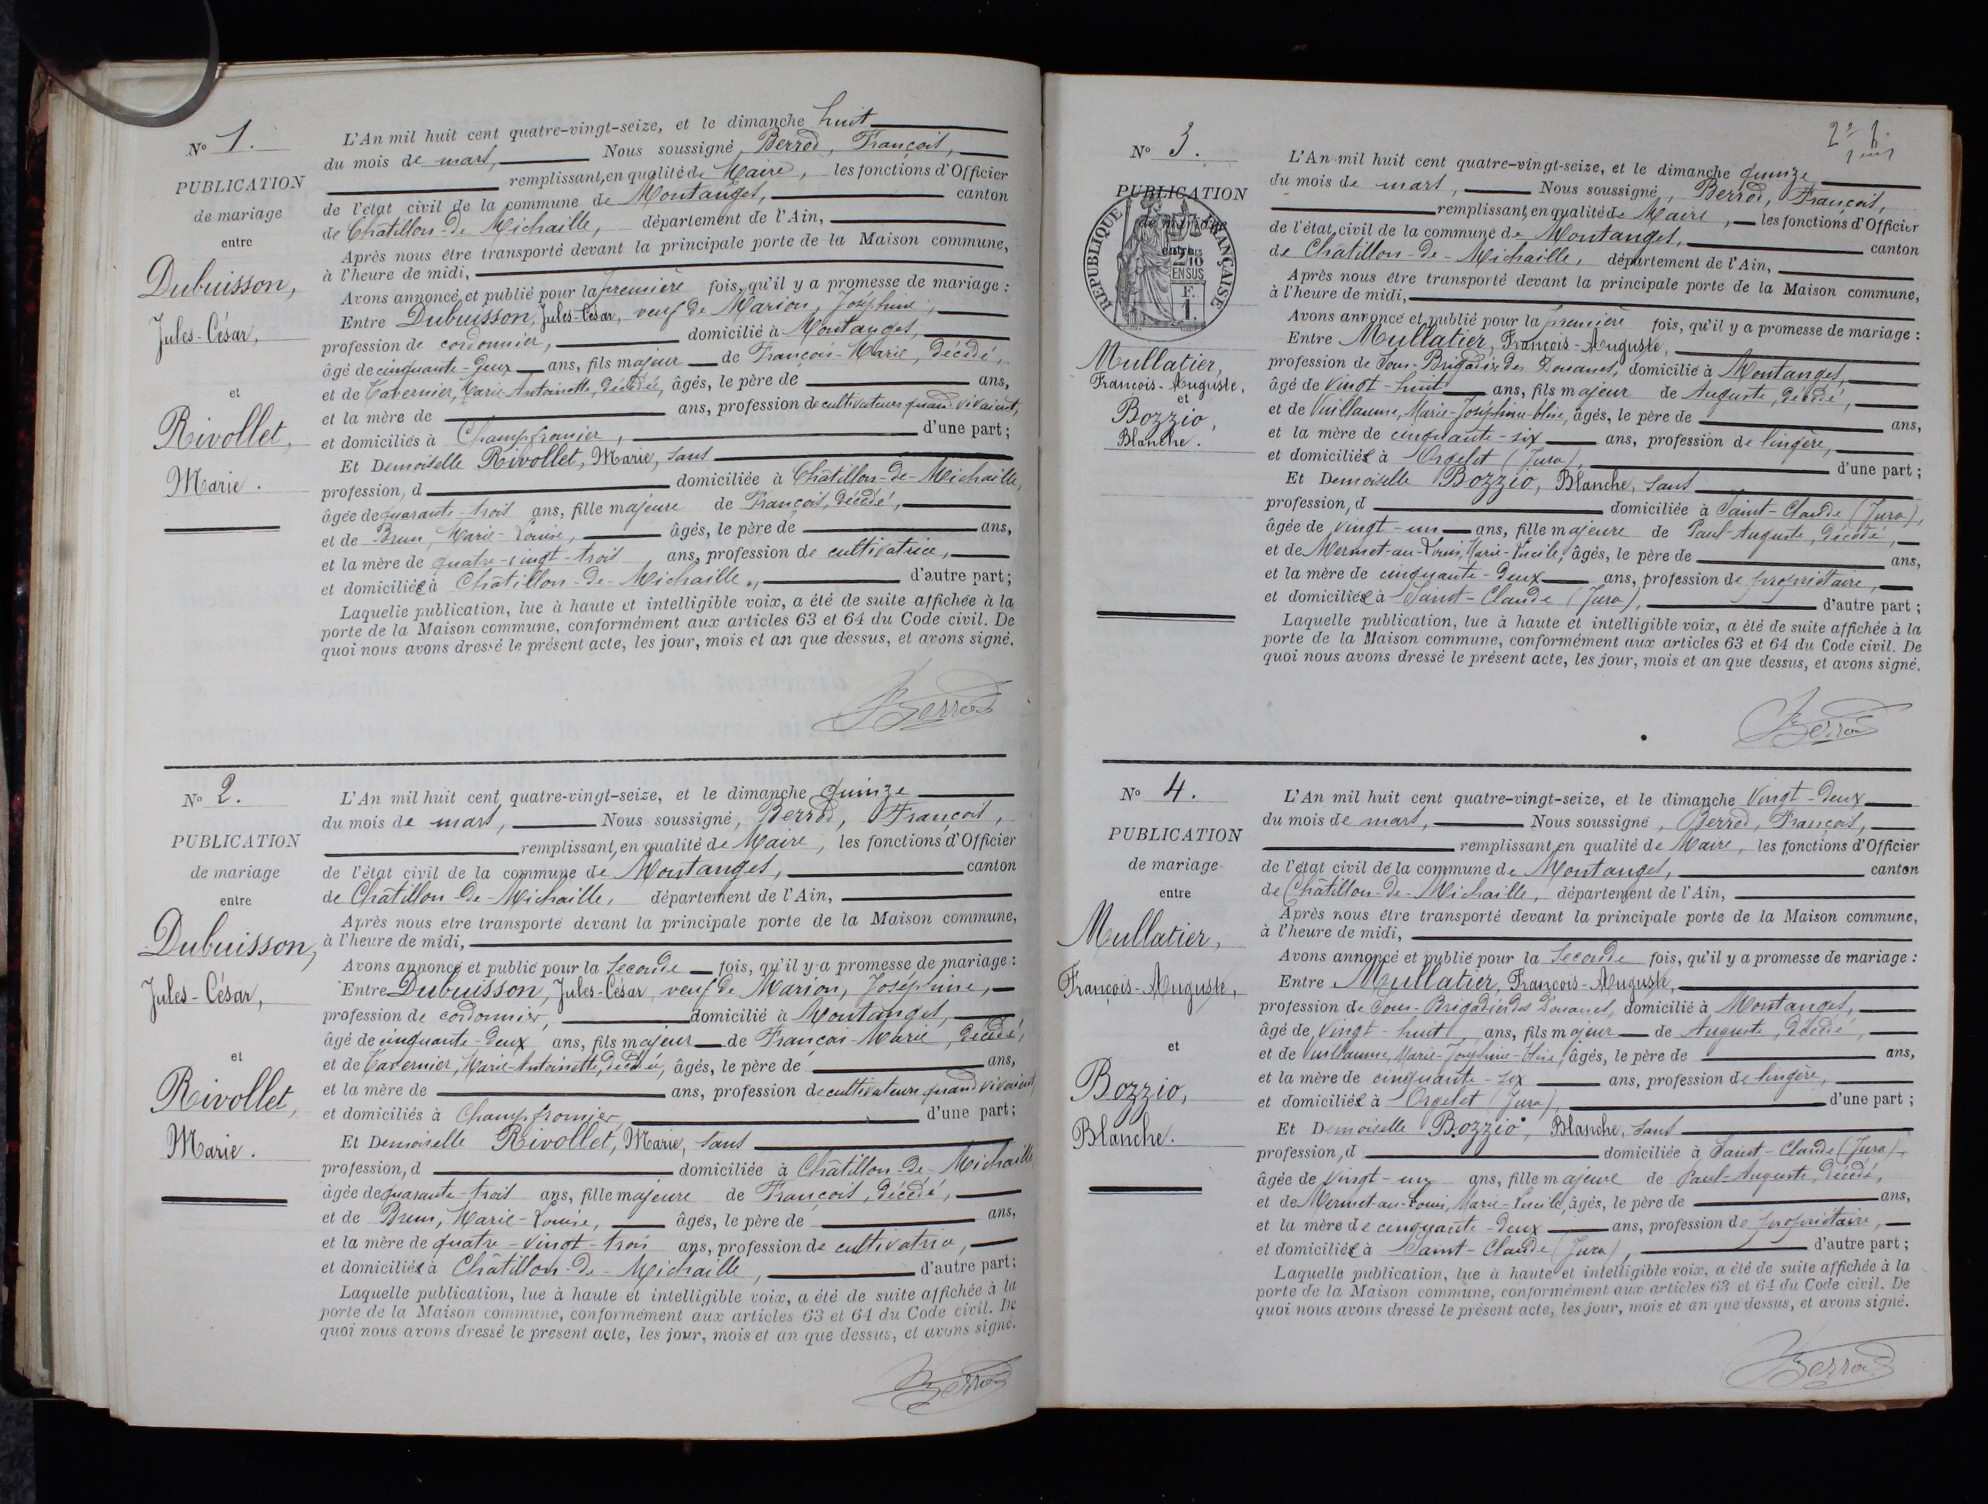 N° 1.
PUBLICATION
de mariage
entre
Dubuisson,
Jules-César,
et
Rivollet,
Marie.
L'An mil huit cent quatre-vingt-seize, et le dimanche huit
du mois de mars, Nous soussigné, Berrod, François,
remplissant, en qualité de Maire, les fonctions d'Officier
de l'état civil de la commune de Montanges, canton
de Châtillon-de-Michaille, département de l'Ain,
Après nous être transporté devant la principale porte de la Maison commune,
à l'heure de midi,
Avons annoncé et publié pour la première fois, qu'il y a promesse de mariage :
Entre Dubuisson, Jules-César, veuf de Marion, Joséphine,
profession de cordonnier, domicilié à Montanges,
âgé de cinquante-deux ans, fils majeur de François-Marie, décédé,
et de Tavernier, Marie-Antoinette, décédée, âgés, le père de ans,
et la mère de ans, profession de cultivateurs quand vivaient,
et domiciliés à Champfromier, d'une part;
Et Demoiselle Rivollet, Marie, sans
profession, d domiciliée à Châtillon-de-Michaille,
âgée de quarante-trois ans, fille majeure de François, décédé,
et de Brun, Marie-Louise, âgés, le père de ans,
et la mère de quatre-vingt-trois ans, profession de cultivatrice,
et domiciliée à Châtillon-de-Michaille, d'autre part;
Laquelle publication, lue à haute et intelligible voix, a été de suite affichée à la
porte de la Maison commune, conformément aux articles 63 et 64 du Code civil. De
quoi nous avons dressé le présent acte, les jour, mois et an que dessus, et avons signé.
Berrod
N° 2.
PUBLICATION
de mariage
entre
Dubuisson,
Jules-César,
et
Rivollet,
Marie.
L'An mil huit cent quatre-vingt-seize, et le dimanche quinze
du mois de mars, Nous soussigné, Berrod, François,
remplissant, en qualité de Maire, les fonctions d'Officier
de l'état civil de la commune de Montanges, canton
de Châtillon-de-Michaille, département de l'Ain,
Après nous etre transporté devant la principale porte de la Maison commune,
à l'heure de midi,
Avons annoncé et publié pour la seconde fois, qu'il y a promesse de mariage :
Entre Dubuisson, Jules-César, veuf de Marion, Joséphine,
profession de cordonnier, domicilié à Montanges,
âgé de cinquante-deux ans, fils majeur de François-Marie, décédé,
et de Tavernier, Marie-Antoinette, décédée, âgés, le père de ans,
et la mère de ans, profession de cultivateurs quand vivaient,
et domiciliés à Champfromier, d'une part;
Et Demoiselle Rivollet, Marie, sans
profession, d domiciliée à Châtillon-de-Michaille
âgée de quarante-trois ans, fille majeure de François, décédé,
et de Brun, Marie-Louise, âgés, le père de ans,
et la mère de quatre-vingt-trois ans, profession de cultivatrice,
et domiciliée à Châtillon-de-Michaille, d'autre part;
Laquelle publication, lue à haute et intelligible voix, a été de suite affichée à la
porte de la Maison commune, conformément aux articles 63 et 64 du Code civil. De
quoi nous avons dressé le present acte, les jour, mois et an que dessus, et avons signé.
Berrod
N° 3.
PUBLICATION
de mariage
entre
RÉPUBLIQUE FRANÇAISE
2/10
EN SUS
F.
1.
Mullatier,
François-Auguste,
et
Bozzio,
Blanche.
L'An mil huit cent quatre-vingt-seize, et le dimanche quinze
du mois de mars, Nous soussigné, Berrod, François,
remplissant, en qualité de Maire, les fonctions d'Officier
de l'état civil de la commune de Montanges, canton
de Châtillon-de-Michaille, département de l'Ain,
Après nous être transporté devant la principale porte de la Maison commune,
à l'heure de midi,
Avons annoncé et publié pour la première fois, qu'il y a promesse de mariage :
Entre Mullatier, François-Auguste,
profession de Sous-Brigadier des Douanes, domicilié à Montanges,
âgé de vingt-huit ans, fils majeur de Auguste, décédé,
et de Vuillaume, Marie-Joséphine- âgés, le père de ans,
et la mère de cinquante-six ans, profession de lingère,
et domiciliée à Orgelet (Jura), d'une part;
Et Demoiselle Bozzio, Blanche, sans
profession, d domiciliée à Saint-Claude (Jura),
âgée de vingt-un ans, fille majeure de Paul-Auguste, décédé,
et de Mermet-au-Louis, Marie-Lucile, âgés, le père de ans,
et la mère de cinquante-deux ans, profession de propriétaire,
et domiciliée à Saint-Claude (Jura), d'autre part;
Laquelle publication, lue à haute et intelligible voix, a été de suite affichée à la
porte de la Maison commune, conformément aux articles 63 et 64 du Code civil. De
quoi nous avons dressé le présent acte, les jour, mois et an que dessus, et avons signé.
Berrod
N° 4.
PUBLICATION
de mariage
entre
Mullatier,
François-Auguste,
et
Bozzio,
Blanche.
L'An mil huit cent quatre-vingt-seize, et le dimanche vingt-deux
du mois de mars, Nous soussigné, Berrod, François,
remplissant, en qualité de Maire, les fonctions d'Officier
de l'état civil de la commune de Montanges, canton
de Châtillon-de-Michaille, département de l'Ain,
Après nous être transporté devant la principale porte de la Maison commune,
à l'heure de midi,
Avons annoncé et publié pour la seconde fois, qu'il y a promesse de mariage :
Entre Mullatier, François-Auguste,
profession de Sous-Brigadier des Douanes, domicilié à Montanges,
âgé de vingt-huit ans, fils majeur de Auguste, décédé,
et de Vuillaume, Marie-Joséphine- âgés, le père de ans,
et la mère de cinquante-six ans, profession de lingère,
et domiciliée à Orgelet (Jura), d'une part;
Et Demoiselle Bozzio, Blanche, sans
profession, d domiciliée à Saint-Claude (Jura),
âgée de vingt-un ans, fille majeure de Paul-Auguste, décédé,
et de Mermet-au-Louis, Marie-Lucile, âgés, le père de ans,
et la mère de cinquante-deux ans, profession de propriétaire,
et domiciliée à Saint-Claude (Jura), d'autre part;
Laquelle publication, lue à haute et intelligible voix, a été de suite affichée à la
porte de la Maison commune, conformément aux articles 63 et 64 du Code civil. De
quoi nous avons dressé le présent acte, les jour, mois et an que dessus, et avons signé.
Berrod